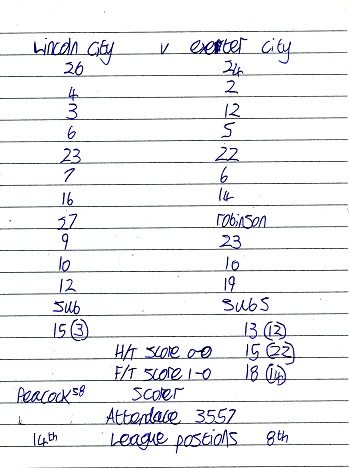 Lincoln City v exeter city
26 24
4 2
3 12
6 5
23 22
7 6
16 14
27 robinson
9 23
10 10
12 19
Sub Subs
15 (3) 13 (12)
H/T Score 0-0 15 (22)
F/T Score 1-0 18 (14)
Peacock 58 Scorer
Attendace 3557
14th League postions 8th